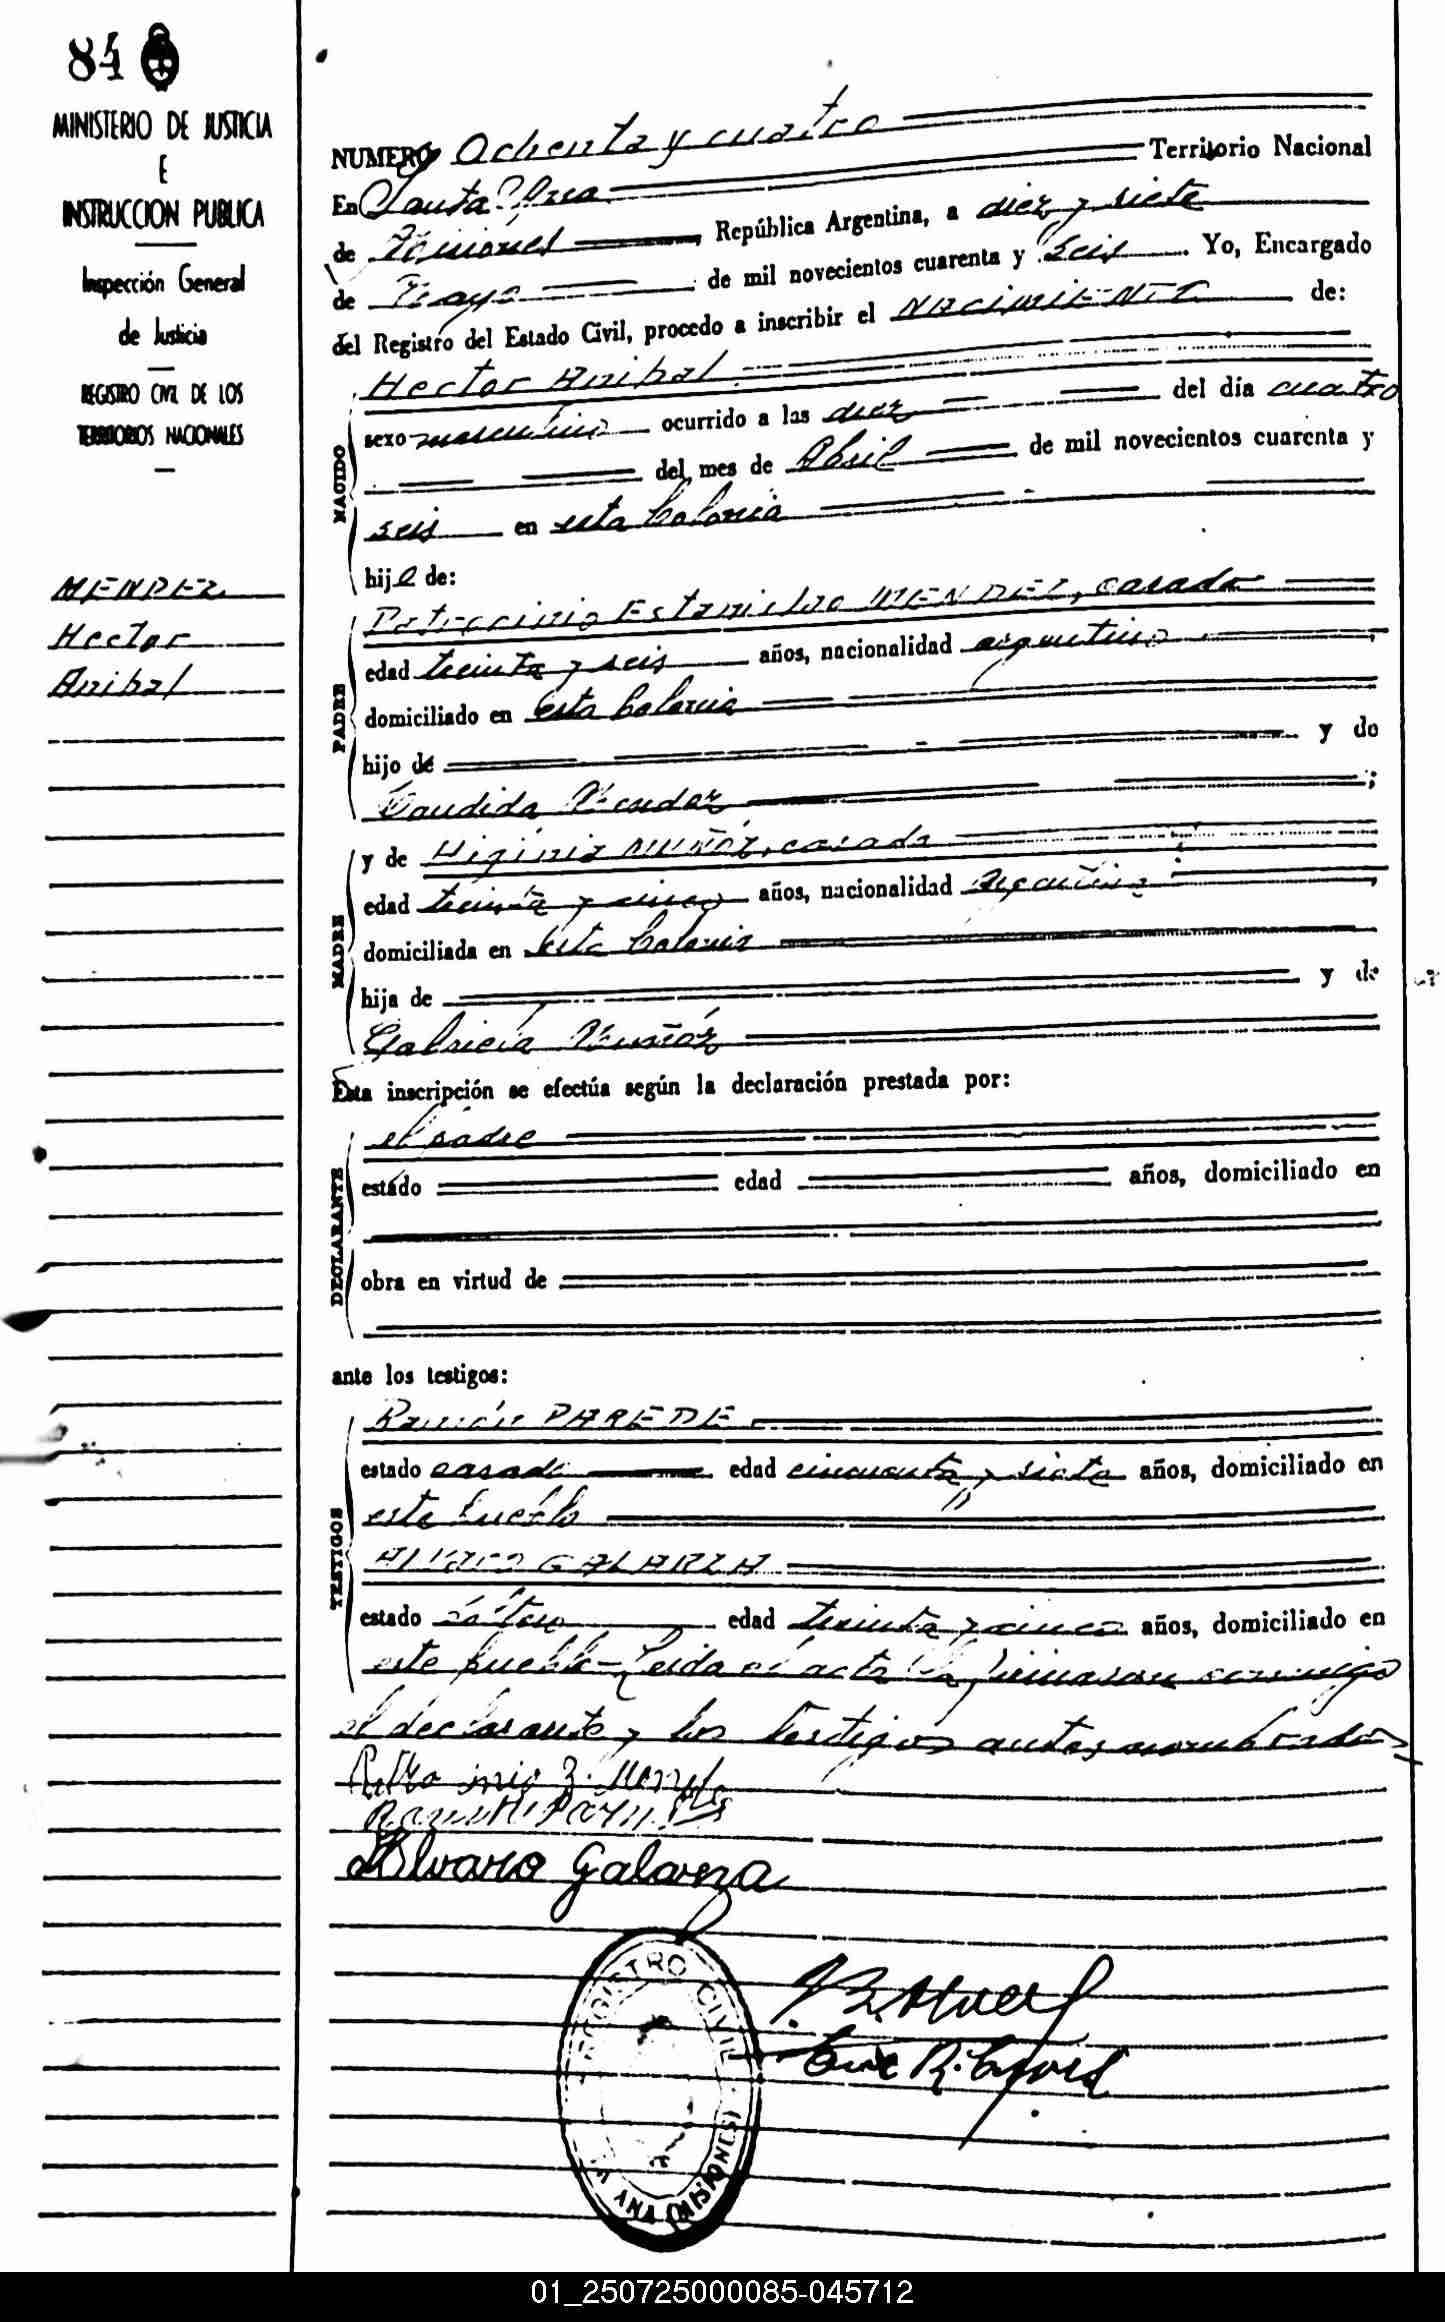 84
MINISTERIO DE JUSTICIA
E
INSTRUCCION PUBLICA
Inspección General
de Justicia
REGISTRO CIVIL DE LOS
TERRITORIOS NACIONALES
MENDEZ
Hector
Anibal
NUMERO Ochenta y cuatro
En Santa Ana Territorio Nacional
de Misiones, República Argentina, a diez y siete
de Mayo de mil novecientos cuarenta y seis. Yo, Encargado
del Registro del Estado Civil, procedo a inscribir el NACIMIENTO de:
NACIDO
Hector Anibal
sexo masculino ocurrido a las diez del día cuatro
del mes de Abril de mil novecientos cuarenta y
seis en esta Colonia
hijo de:
PADRE
Patrocinio Estanislao MENDEZ, casado
edad treinta y seis años, nacionalidad argentino
domiciliado en esta Colonia
hijo de y de
Candida Mendez;
MADRE
y de Higinia MUÑOZ, casada
edad treinta y cinco años, nacionalidad Argentina
domiciliada en esta Colonia
hija de y de
Gabricia Muñóz
Esta inscripción se efectúa según la declaración prestada por:
DECLARANTE
el padre
estado edad años, domiciliado en
obra en virtud de
ante los testigos:
TESTIGOS
Ramón PAREDE
estado casado edad cincuenta y siete años, domiciliado en
este pueblo
Alvaro GALARZA
estado soltero edad treinta y cinco años, domiciliado en
este pueblo - Leida el acta la firmaron conmigo
el declarante y los testigos antes nombrados
Alvaro Galarza
REGISTRO CIVIL
ANA (MISIONES)
01_250725000085-045712